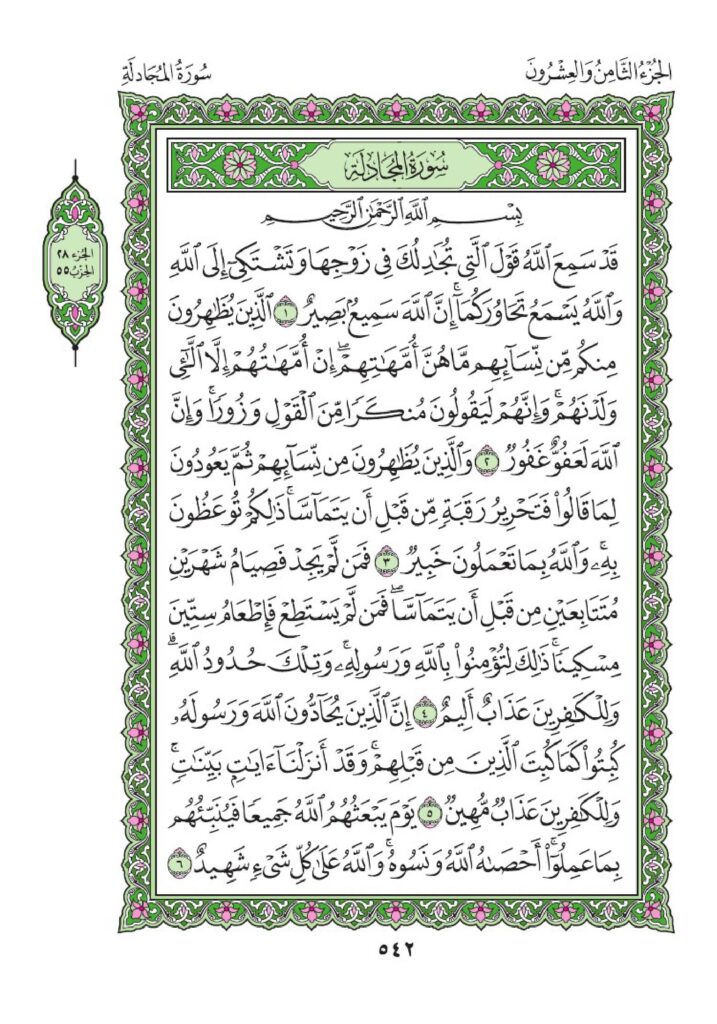 الجُزْءُ الثَّامِنُ وَالعِشْرُونَ
سُورَةُ المُجَادلَةِ
سُورَةُ المُجَادلَةِ
بِسْمِ ٱللَّهِ ٱلرَّحْمَٰنِ ٱلرَّحِيمِ
الجُزء ٢٨
الحِزْبُ ٥٥
قَدْ سَمِعَ ٱللَّهُ قَوْلَ ٱلَّتِى تُجَٰدِلُكَ فِى زَوْجِهَا وَتَشْتَكِىٓ إِلَى ٱللَّهِ
وَٱللَّهُ يَسْمَعُ تَحَاوُرَكُمَآ ۚ إِنَّ ٱللَّهَ سَمِيعٌۢ بَصِيرٌ ١ ٱلَّذِينَ يُظَٰهِرُونَ
مِنكُم مِّن نِّسَآئِهِم مَّا هُنَّ أُمَّهَٰتِهِمْ ۖ إِنْ أُمَّهَٰتُهُمْ إِلَّا ٱلَّٰٓـِٔى
وَلَدْنَهُمْ ۚ وَإِنَّهُمْ لَيَقُولُونَ مُنكَرًا مِّنَ ٱلْقَوْلِ وَزُورًا ۚ وَإِنَّ
ٱللَّهَ لَعَفُوٌّ غَفُورٌ ٢ وَٱلَّذِينَ يُظَٰهِرُونَ مِن نِّسَآئِهِمْ ثُمَّ يَعُودُونَ
لِمَا قَالُوا۟ فَتَحْرِيرُ رَقَبَةٍ مِّن قَبْلِ أَن يَتَمَآسَّا ۚ ذَٰلِكُمْ تُوعَظُونَ
بِهِۦ ۚ وَٱللَّهُ بِمَا تَعْمَلُونَ خَبِيرٌ ٣ فَمَن لَّمْ يَجِدْ فَصِيَامُ شَهْرَيْنِ
مُتَتَابِعَيْنِ مِن قَبْلِ أَن يَتَمَآسَّا ۖ فَمَن لَّمْ يَسْتَطِعْ فَإِطْعَامُ سِتِّينَ
مِسْكِينًا ۚ ذَٰلِكَ لِتُؤْمِنُوا۟ بِٱللَّهِ وَرَسُولِهِۦ ۚ وَتِلْكَ حُدُودُ ٱللَّهِ ۗ
وَلِلْكَٰفِرِينَ عَذَابٌ أَلِيمٌ ٤ إِنَّ ٱلَّذِينَ يُحَآدُّونَ ٱللَّهَ وَرَسُولَهُۥ
كُبِتُوا۟ كَمَا كُبِتَ ٱلَّذِينَ مِن قَبْلِهِمْ ۚ وَقَدْ أَنزَلْنَآ ءَايَٰتٍۭ بَيِّنَٰتٍ ۚ
وَلِلْكَٰفِرِينَ عَذَابٌ مُّهِينٌ ٥ يَوْمَ يَبْعَثُهُمُ ٱللَّهُ جَمِيعًا فَيُنَبِّئُهُم
بِمَا عَمِلُوٓا۟ ۚ أَحْصَىٰهُ ٱللَّهُ وَنَسُوهُ ۚ وَٱللَّهُ عَلَىٰ كُلِّ شَىْءٍ شَهِيدٌ ٦
٥٤٢